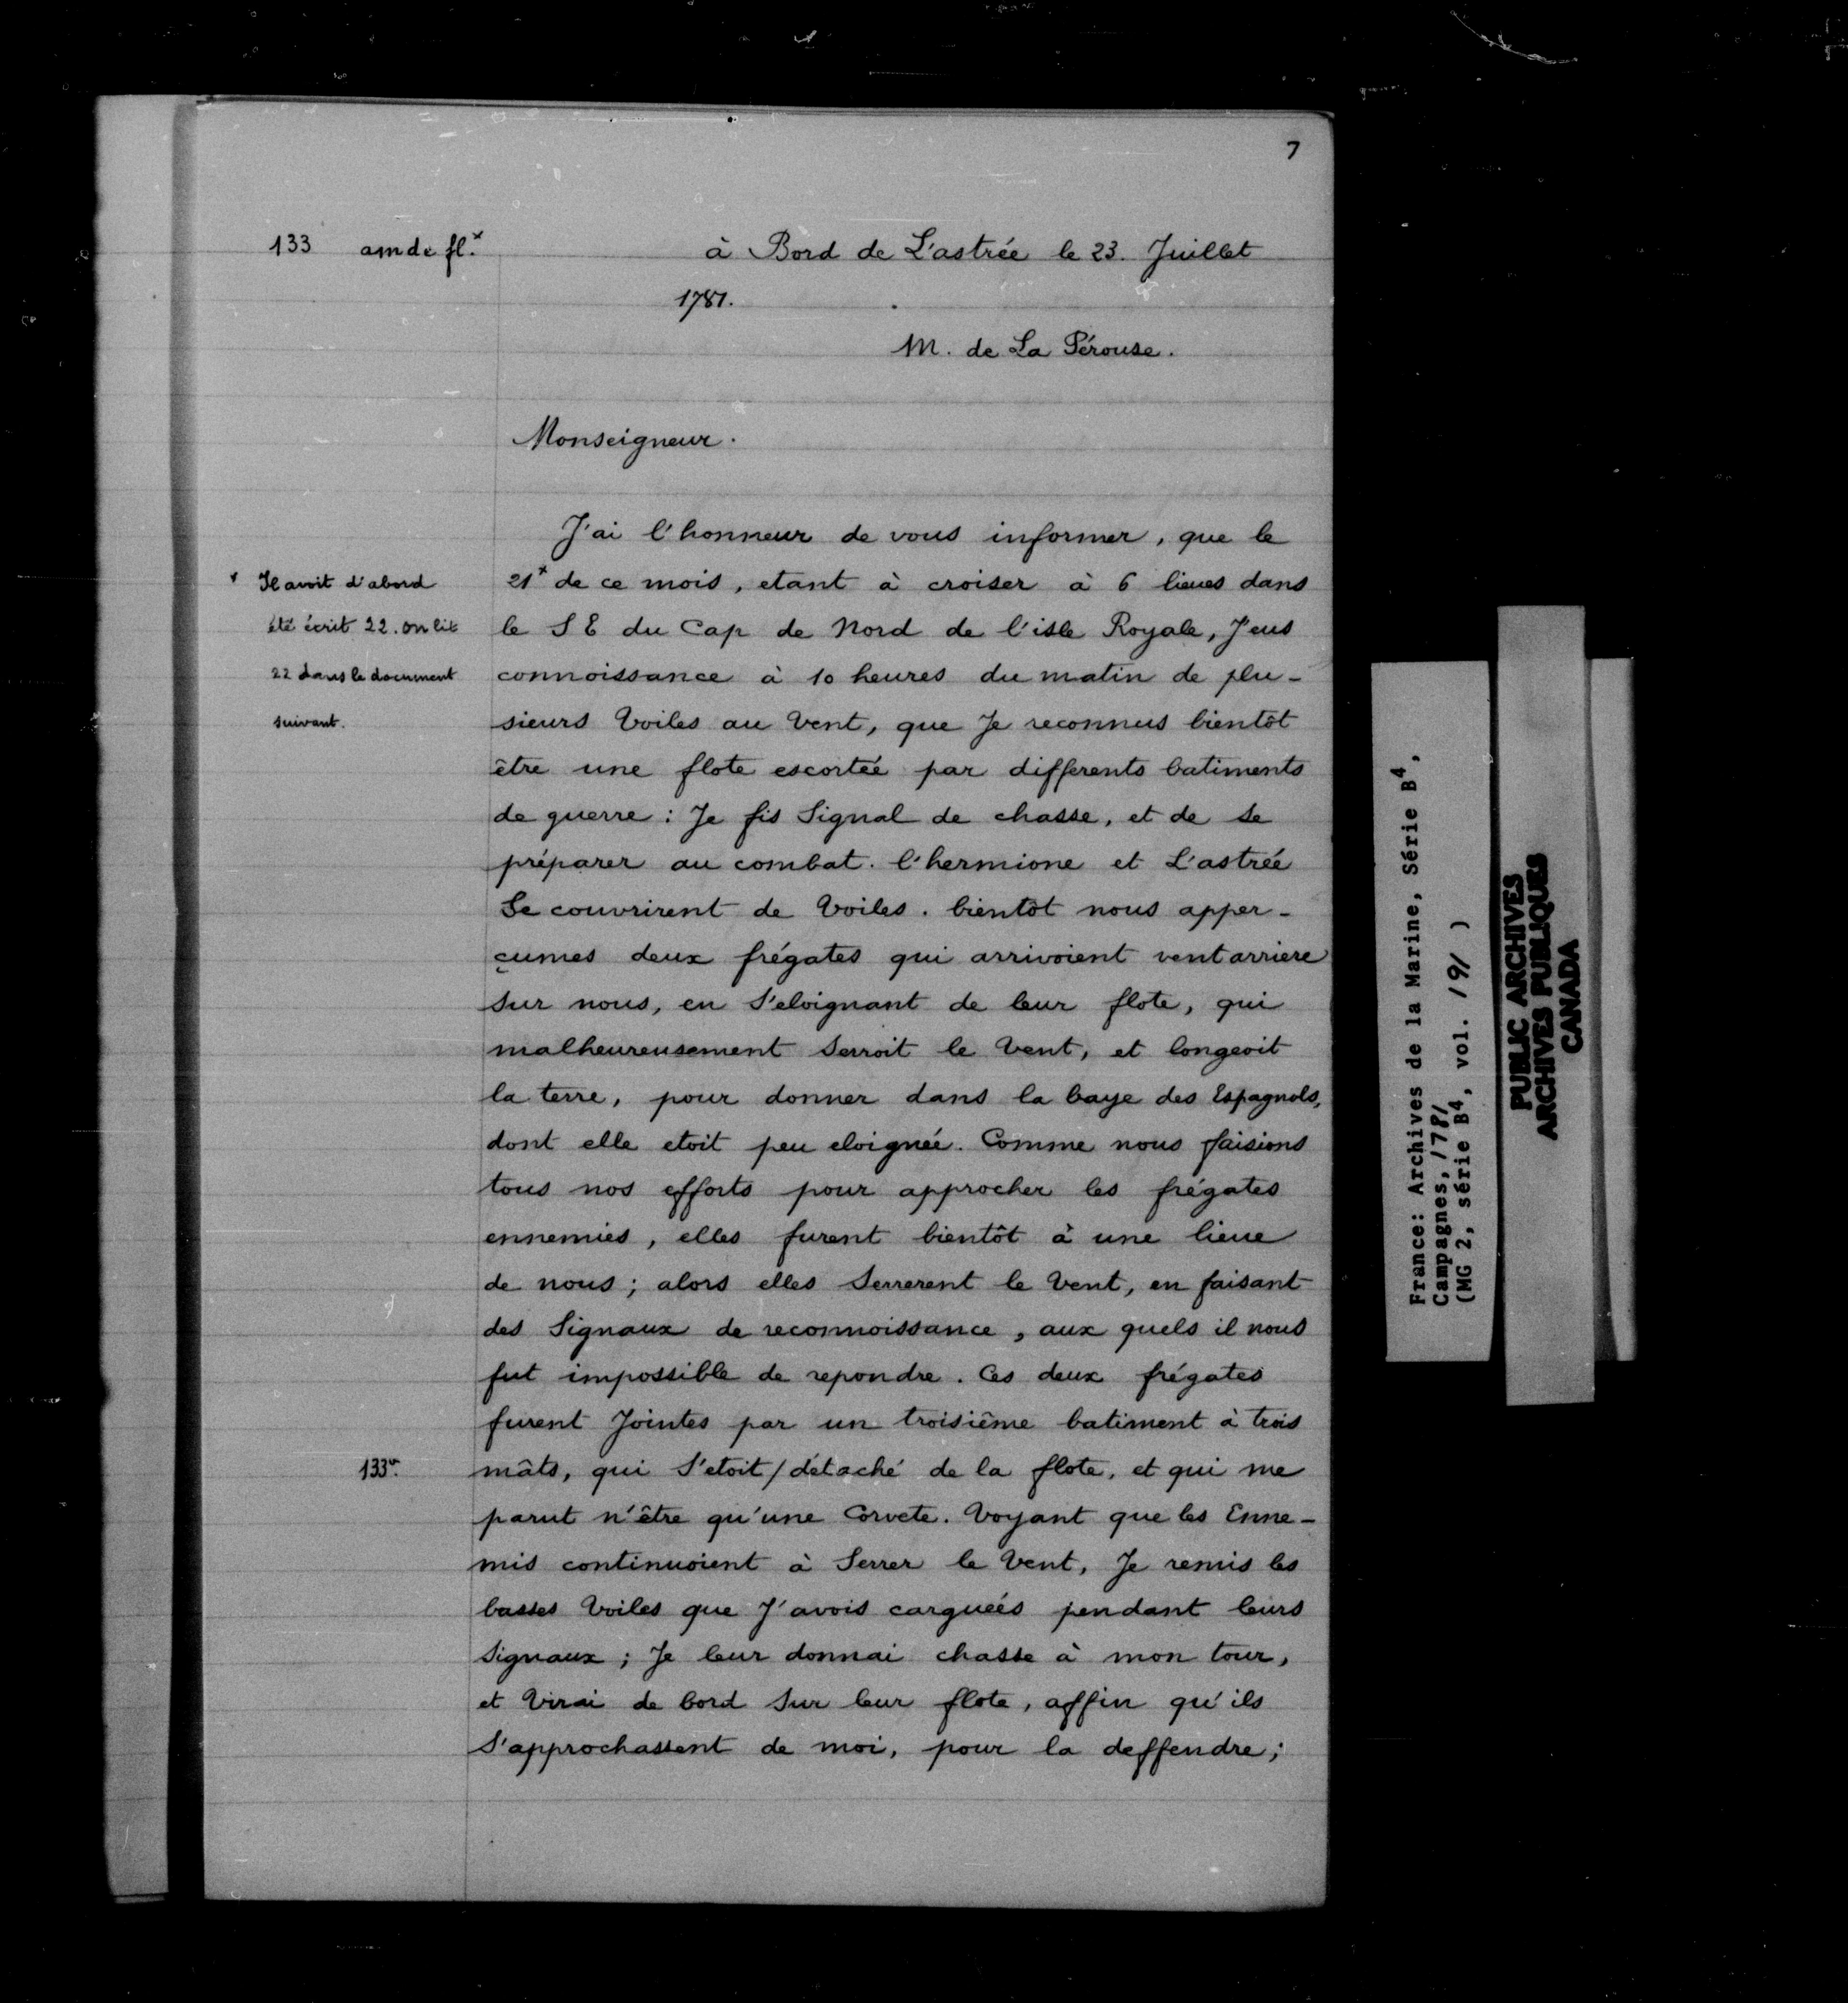 7
133 am de fl.x
à Bord de L'astrée le 23. Juillet
1781.
M. de La Pérouse.
Monseigneur.
J'ai l'honneur de vous informer, que le
21x de ce mois, etant à croiser à 6 lieues dans
le S E du Cap de Nord de l'isle Royale, J'eus
connoissance à 10 heures du matin de plu-
sieurs Voiles au Vent, que Je reconnus bientôt
être une flote escorteé par differents batiments
de guerre : Je fis Signal de chasse, et de se
préparer au combat. l'hermione et L'astrée
Se couvrirent de Voiles. bientôt nous apper-
çumes deux frégates qui arrivoient vent arriere
sur nous, en S'eloignant de leur flote, qui
malheureusement Serroit le Vent, et longeoit
la terre, pour donner dans la baye des Espagnols,
dont elle etoit peu eloigneé. Comme nous faisions
tous nos efforts pour approcher les frégates
ennemies, elles furent bientôt à une lieue
de nous ; alors elles Serrerent le Vent, en faisant
des Signaux de reconnoissance, aux quels il nous
fut impossible de repondre. Ces deux frégates
furent Jointes par un troisiême batiment à trois
mâts, qui S'etoit / détaché de la flote, et qui me
parut n'être qu'une Corvete. Voyant que les Enne-
mis continuoient à Serrer le Vent, Je remis les
basses Voiles que J'avois cargueés pendant leurs
Signaux ; Je leur donnai chasse à mon tour,
et Virai de bord Sur leur flote, affin qu'ils
S'approchassent de moi, pour la deffendre ;
x Il avoit d'abord
été écrit 22. on lit
22 dans le document
suivant.
133v.
France: Archives de la Marine, Série B4,
Campagnes, 1781
(MG 2, série B4, vol. 191 )
PUBLIC ARCHIVES
ARCHIVES PUBLIQUES
CANADA